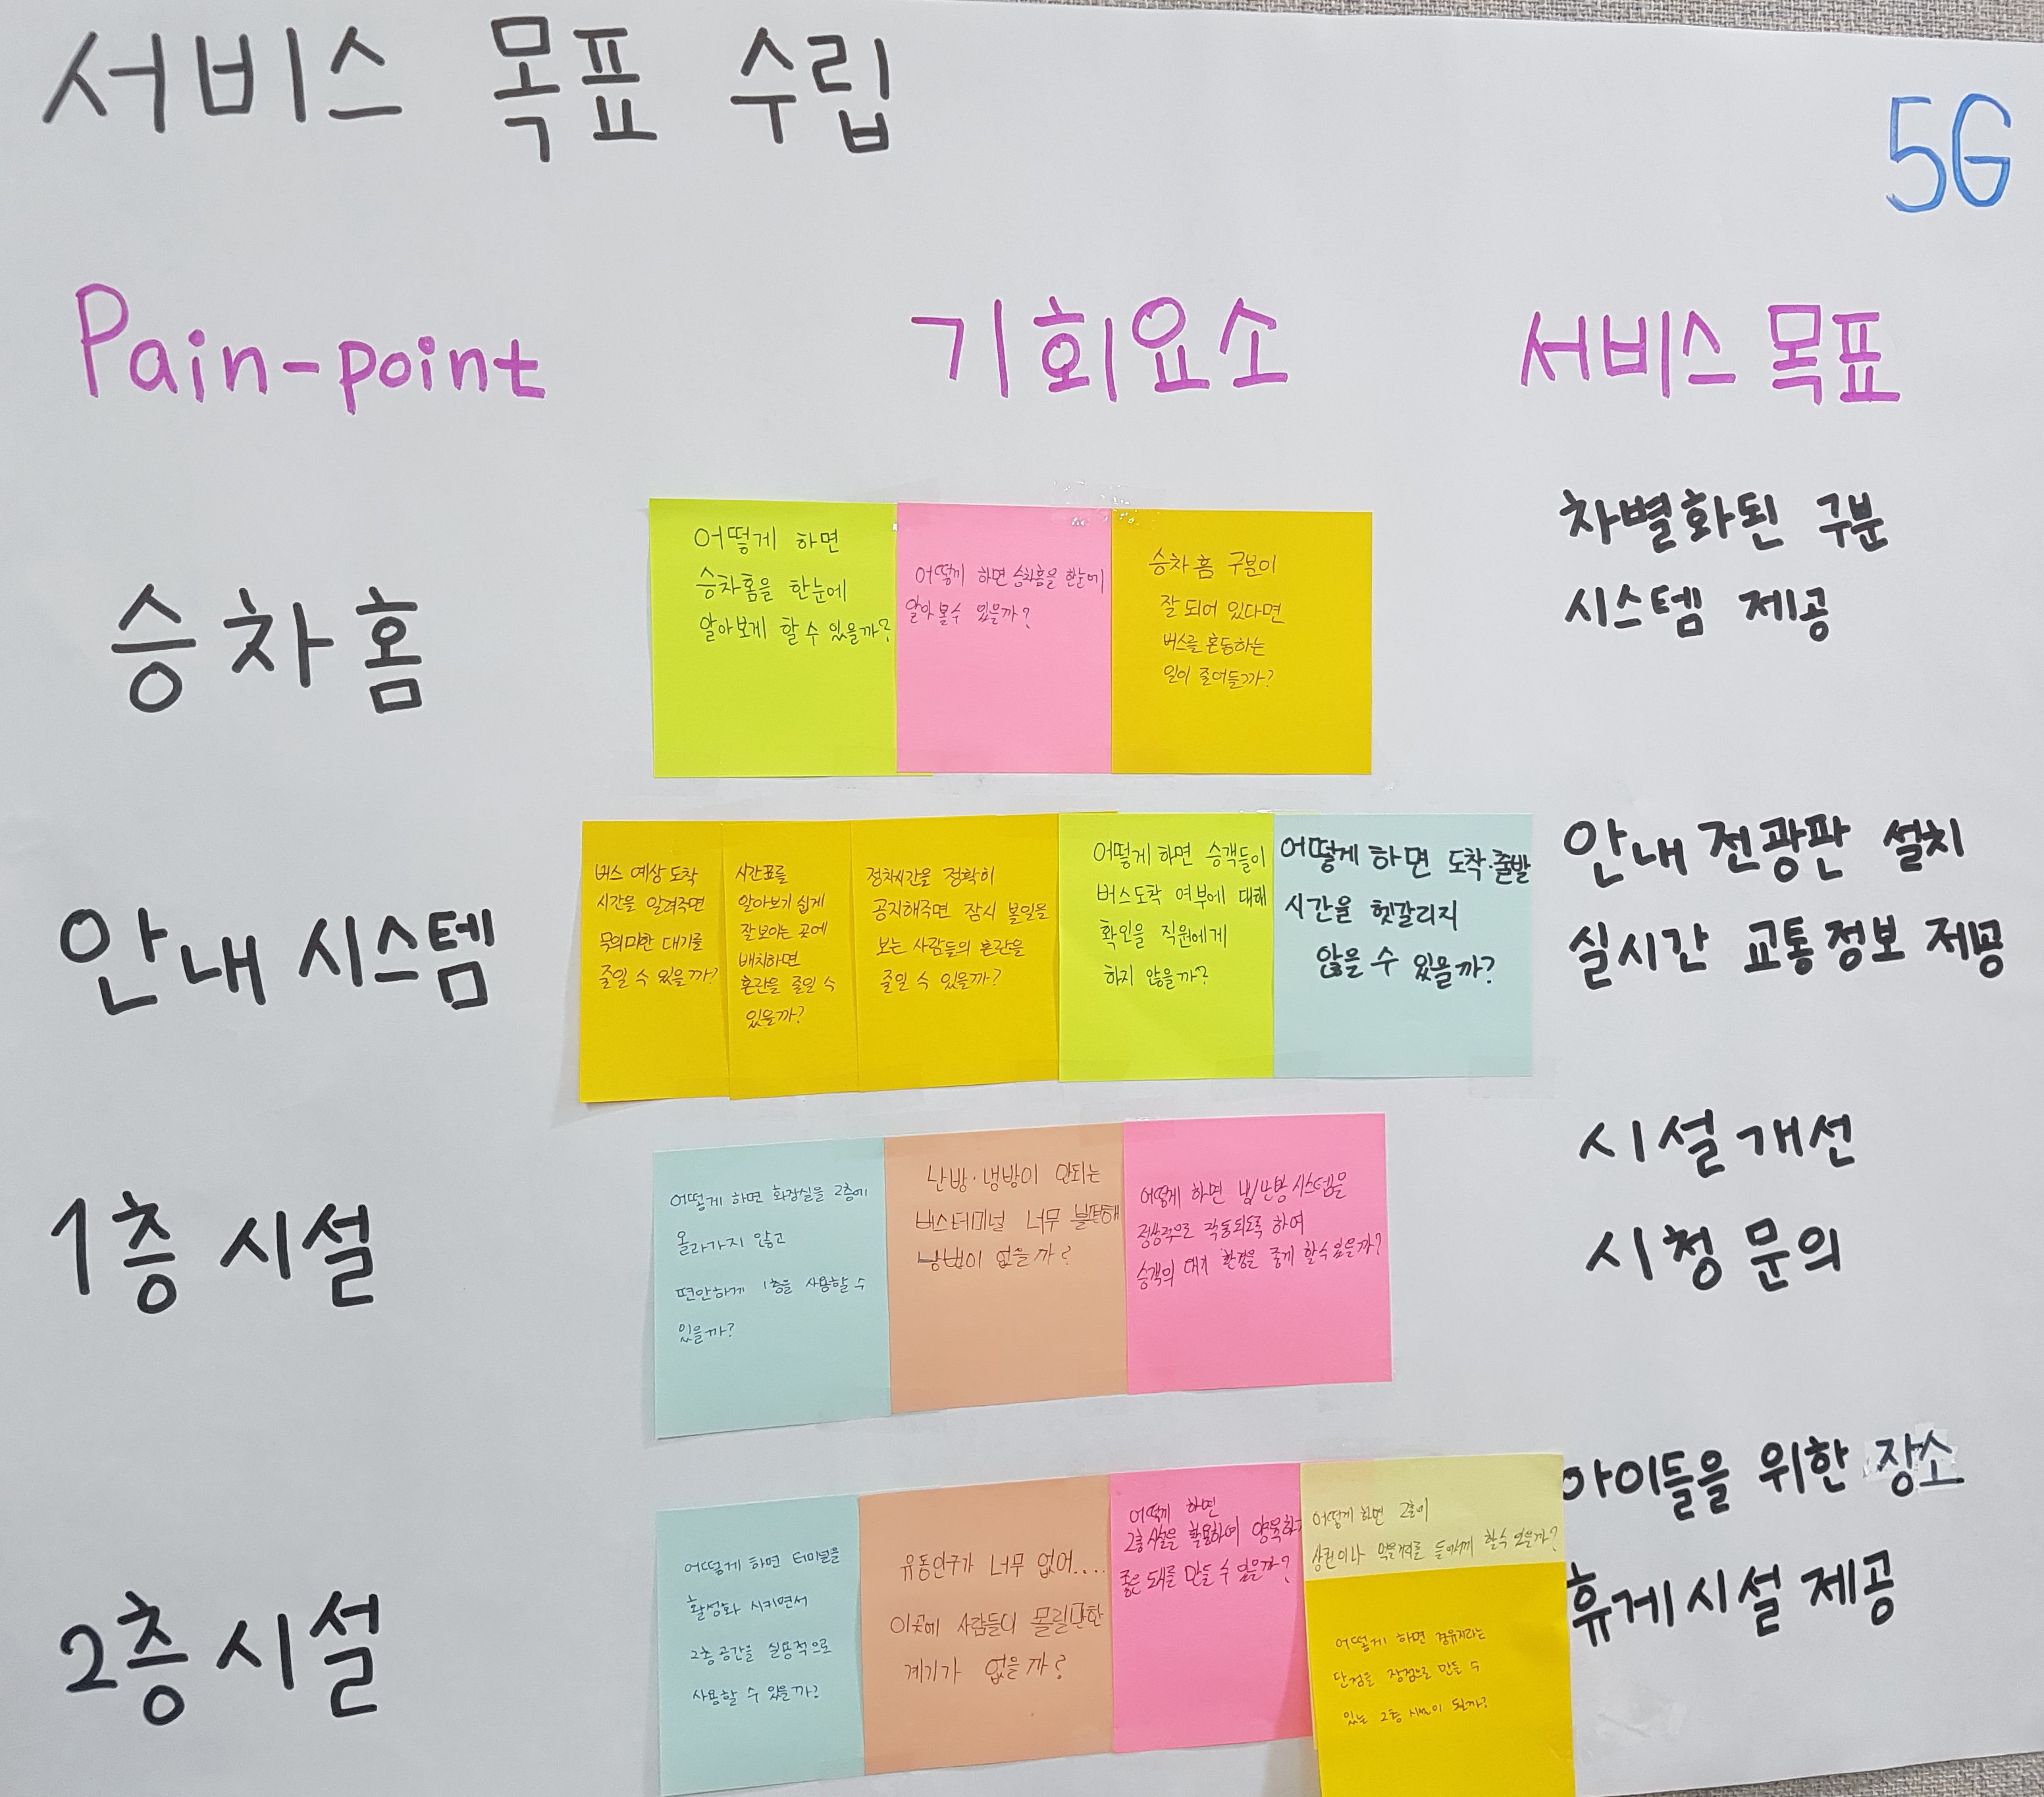 서비스 목표 수립
5G
Pain-point
기회요소
서비스 목표
승차홈
어떻게 하면
승차홈을 한눈에
알아보게 할 수 있을까?
어떻게 하면 승차홈을 한눈에
알아볼수 있을까?
승차 홈 구분이
잘 되어 있다면
버스를 혼동하는
일이 줄어들까?
차별화된 구분
시스템 제공
안내 시스템
버스 예상 도착
시간을 알려주면
무의미한 대기를
줄일 수 있을까?
시간표를
알아보기 쉽게
잘보이는 곳에
배치하면
혼란을 줄일 수
있을까?
정차시간을 정확히
공지해주면 잠시 볼일을
보는 사람들의 혼란을
줄일 수 있을까?
어떻게 하면 승객들이
버스도착 여부에 대해
확인을 직원에게
하지 않을까?
어떻게 하면 도착·출발
시간을 헷갈리지
않을 수 있을까?
안내 전광판 설치
실시간 교통정보 제공
1층 시설
어떻게 하면 화장실을 2층에
올라가지 않고
편안하게 1층을 사용할 수
있을까?
난방·냉방이 안되는
버스터미널 너무 불편해
방법이 없을까?
어떻게 하면 냉/난방 시스템을
정상적으로 작동되도록 하여
승객의 대기 환경을 좋게 할수있을까?
시설 개선
시청 문의
2층 시설
어떻게 하면 터미널을
활성화 시키면서
2층 공간을 실용적으로
사용할 수 있을까?
유동인구가 너무 없어....
이곳에 사람들이 몰릴만한
계기가 없을까?
어떻게 하면
2층시설을 활용하여
좋은 만들 수 있을까?
어떻게 하면 2층에
상권이나 먹을거리를 할수 있을까?
어떻게 하면 경유지라는
단점을 장점으로 만들 수
있는 2층 시설이 될까?
아이들을 위한 장소
휴게시설 제공